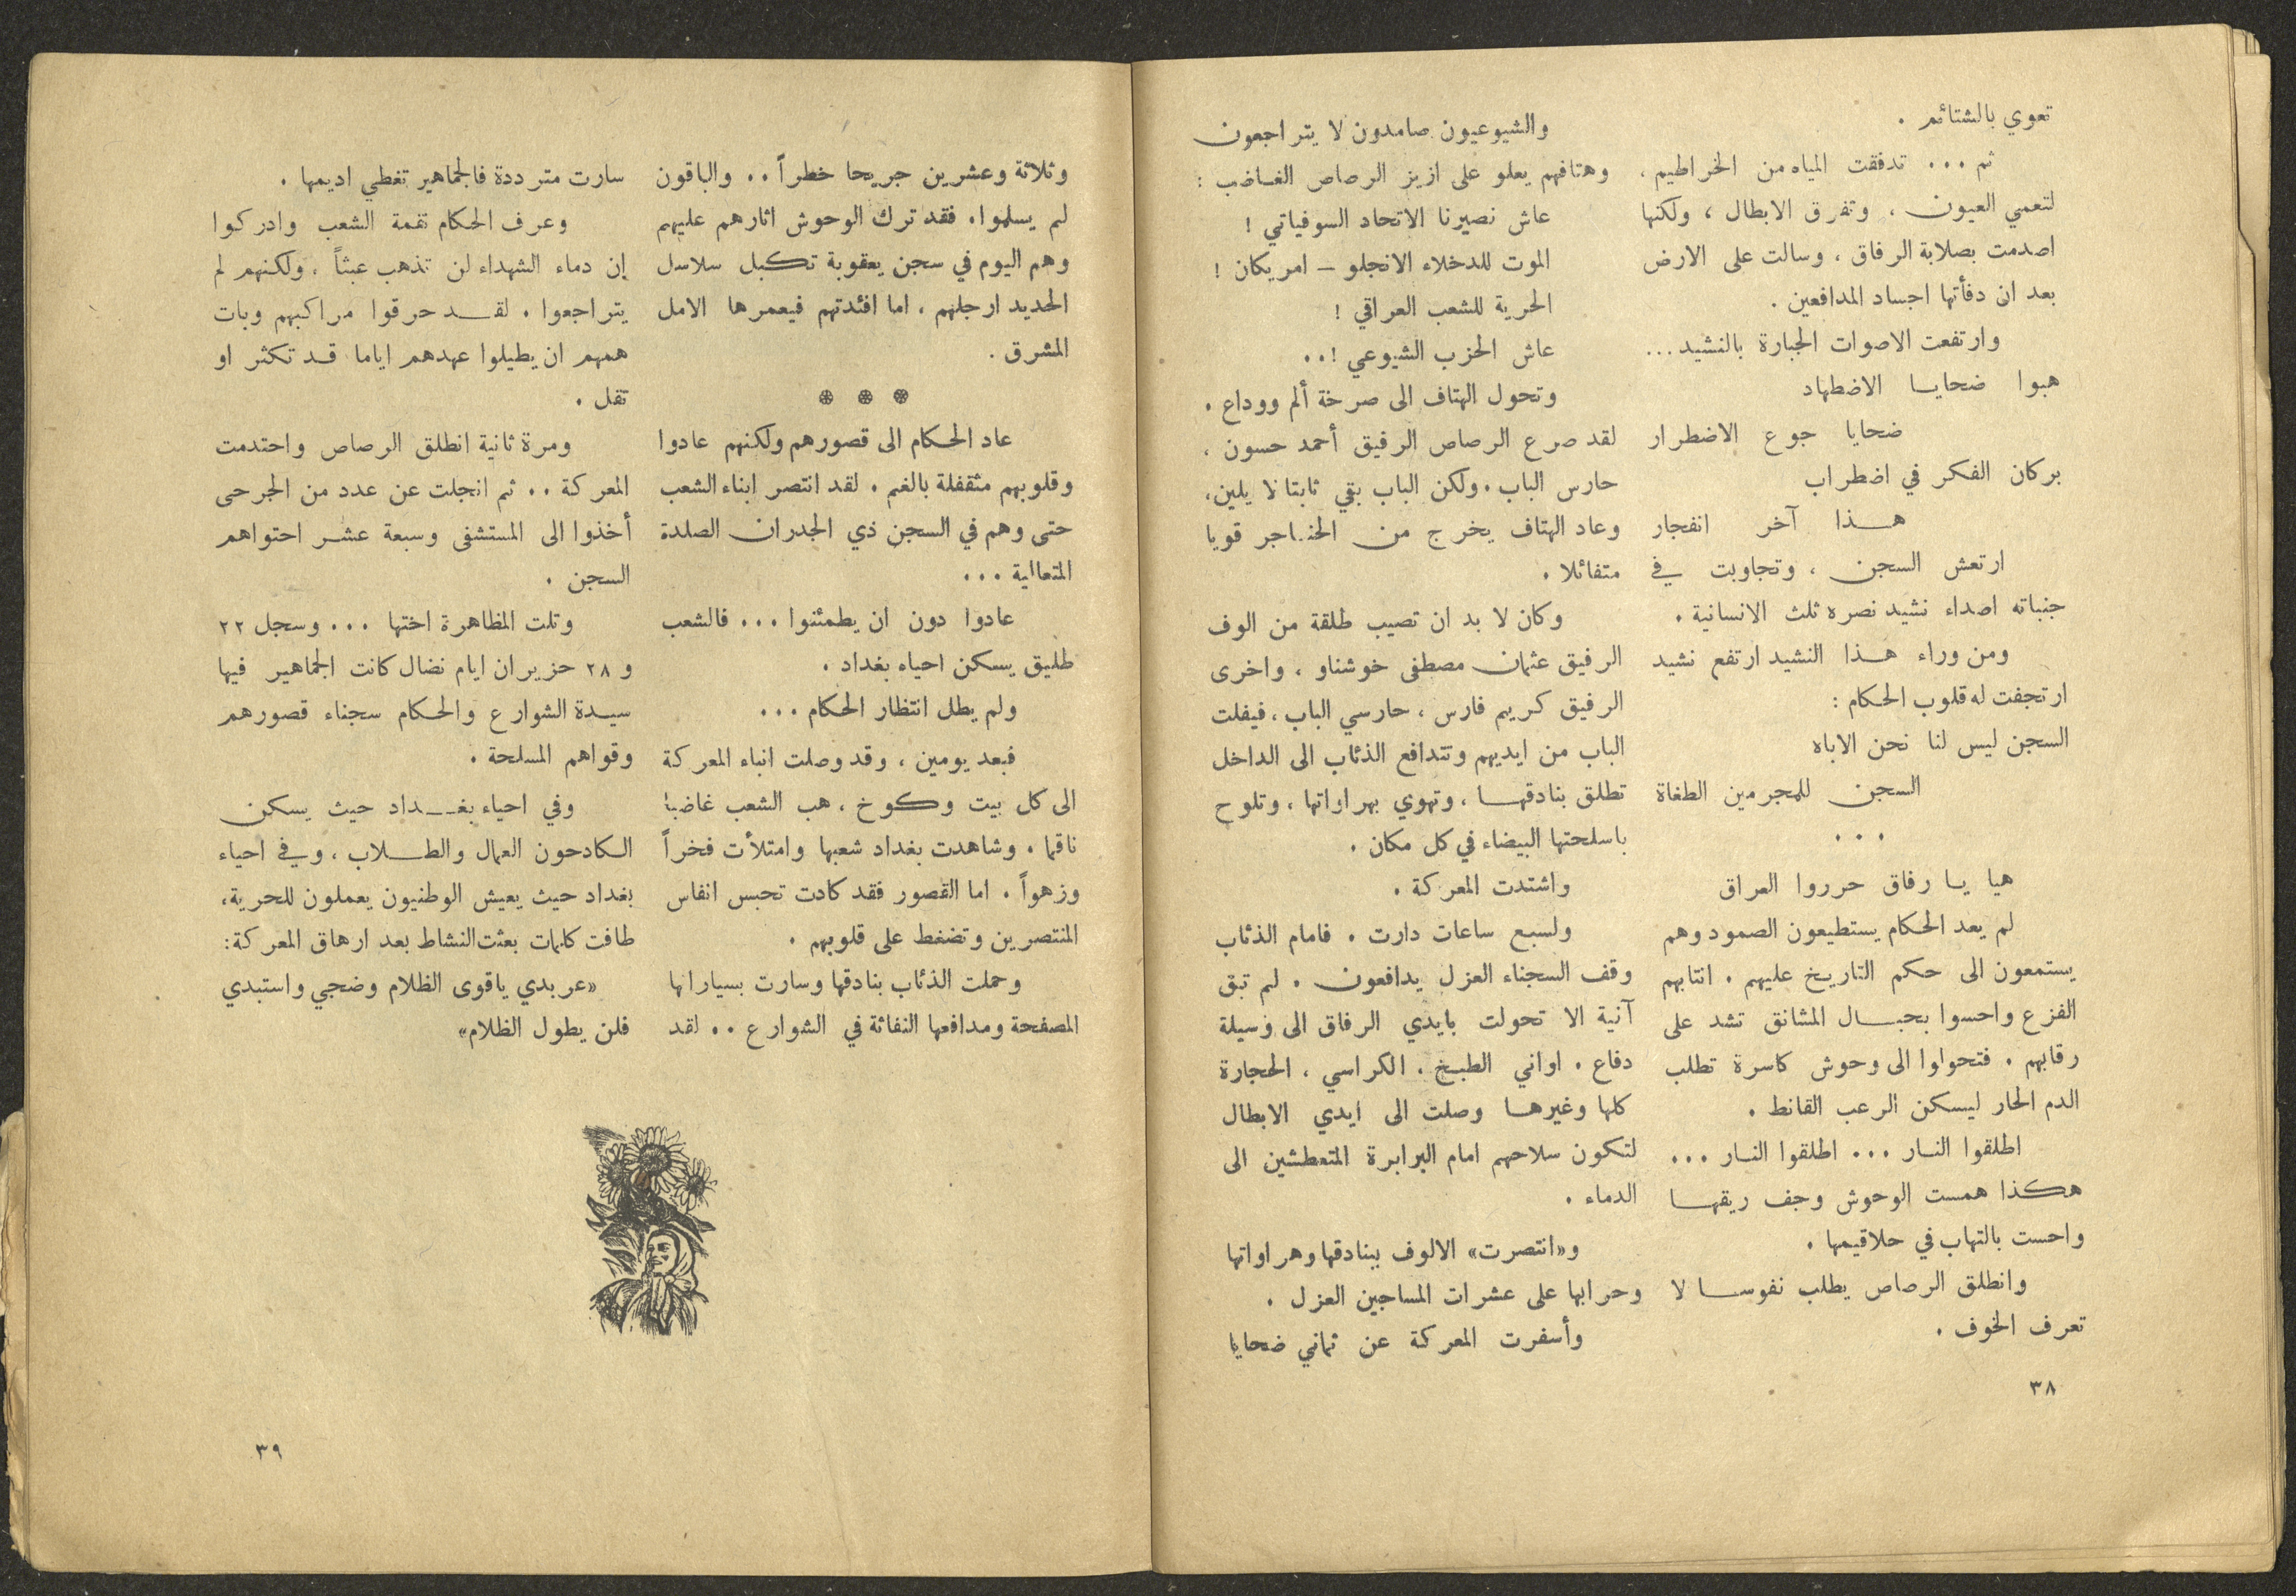 تعوي بالشتائم .
ثم ... تدفقت المياه من الخراطيم ،
لتعمي العيون ، وتفرق الابطال ، ولكنها
اصدمت بصلابة الرفاق ، وسالت على الارض
بعد ان دفأتها اجساد المدافعين .
وارتفعت الاصوات الجبارة بالنشيد ...
هبوا ضحايا الاضطهاد
ضحايا جوع الاضطرار
بركان الفكر في اضطراب
هذا آخر انفجار
ارتعش السجن ، وتجاوبت في
جنباته اصداء نشيد نصره ثلث الانسانية .
ومن وراء هذا النشيد ارتفع نشيد
ارتجفت له قلوب الحكام :
السجن ليس لنا نحن الاباه
السجن للمجرمين الطغاة
...
هيا يا رفاق حرروا العراق
لم يعد الحكام يستطيعون الصمود وهم
يستمعون الى حكم التاريخ عليهم . انتابهم
الفزع واحسوا بحبال المشانق تشد على
رقابهم . فتحولوا الى وحوش كاسرة تطلب
الدم الحار ليسكن الرعب القانط .
اطلقوا النار ... اطلقوا النار ...
هكذا همست الوحوش وجف ريقها
واحست بالتهاب في حلاقيمها .
وانطلق الرصاص يطلب نفوسا لا
تعرف الخوف .
والشيوعيون صامدون لا يتراجعون
وهتافهم يعلو على ازيز الرصاص الغاضب :
عاش نصيرنا الاتحاد السوفياتي !
الموت للدخلاء الانجلو - امريكان !
الحرية للشعب العراقي !
عاش الحزب الشيوعي !..
وتحول الهتاف الى صرخة ألم ووداع .
لقد صرع الرصاص الرفيق أحمد حسون ،
حارس الباب . ولكن الباب بقي ثابتا لا يلين،
وعاد الهتاف يخرج من الحناجر قويا
متفائلا .
وكان لا بد ان تصيب طلقة من الوف
الرفيق عثمان مصطفى خوشناو ، واخرى
الرفيق كريم فارس ، حارسي الباب ، فيفلت
الباب من ايديهم وتتدافع الذئاب الى الداخل
تطلق بنادقها ، وتهوي بهراواتها ، وتلوح
باسلحتها البيضاء في كل مكان .
واشتدت المعركة .
ولسبع ساعات دارت . فامام الذئاب
وقف السجناء العزل يدافعون . لم تبق
آنية الا تحولت بايدي الرفاق الى وسيلة
دفاع . اواني الطبخ . الكراسي ، الحجارة
كلها وغيرها وصلت الى ايدي الابطال
لتكون سلاحهم امام البرابرة المتعطشين الى
الدماء .
و«انتصرت» الالوف ببنادقها وهراواتها
وحرابها على عشرات المساجين العزل .
وأسفرت المعركة عن ثماني ضحايا
٣٨
وثلاثة وعشرين جريحا خطراً .. والباقون
لم يسلموا . فقد ترك الوحوش اثارهم عليهم
وهم اليوم في سجن يعقوبة تكبل سلاسل
الحديد ارجلهم ، اما افئدتهم فيعمرها الامل
المشرق .
❊ ❊ ❊
عاد الحكام الى قصورهم ولكنهم عادوا
وقلوبهم مثقفلة بالغم . لقد انتصر ابناء الشعب
حتى وهم في السجن ذي الجدران الصلدة
المتعالية ...
عادوا دون ان يطمئنوا ... فالشعب
طليق يسكن احياء بغداد .
ولم يطل انتظار الحكام ...
فبعد يومين ، وقد وصلت انباء المعركة
الى كل بيت وكوخ ، هب الشعب غاضبا
ناقما . وشاهدت بغداد شعبها وامتلأت فخراً
وزهواً . اما القصور فقد كادت تحبس انفاس
المنتصرين وتضغط على قلوبهم .
وحملت الذئاب بنادقها وسارت بسياراتها
المصفحة ومدافعها النفاثة في الشوارع .. لقد
سارت مترددة فالجماهير تغطي اديمها .
وعرف الحكام نقمة الشعب وادركوا
إن دماء الشهداء لن تذهب عبثاً ، ولكنهم لم
يتراجعوا . لقد حرقوا مراكبهم وبات
همهم ان يطيلوا عهدهم اياما قد تكثر او
تقل .
ومرة ثانية انطلق الرصاص واحتدمت
المعركة .. ثم انجلت عن عدد من الجرحى
أخذوا الى المستشفى وسبعة عشر احتواهم
السجن .
وتلت المظاهرة اختها ... وسجل ٢٢
و ٢٨ حزيران ايام نضال كانت الجماهير فيها
سيدة الشوارع والحكام سجناء قصورهم
وقواهم المسلحة .
وفي احياء بغداد حيث يسكن
الكادحون العمال والطلاب ، وفي احياء
بغداد حيث يعيش الوطنيون يعملون للحرية،
طافت كلمات بعثت النشاط بعد ارهاق المعركة :
«عربدي ياقوى الظلام وضجي واستبدي
فلن يطول الظلام»
٣٩